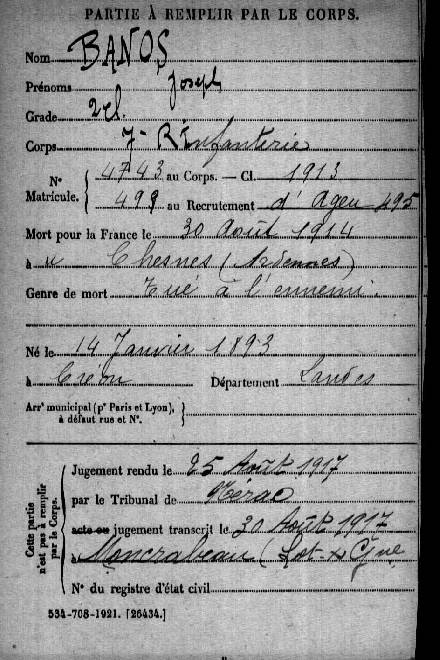 PARTIE À REMPLIR PAR LE CORPS.
Nom BANOS
Prénoms Joseph
Grade 2cl.
Corps 7e Rt infanterie
N° Matricule. { 4743 au Corps. — Cl. 1913
499 au Recrutement d'Agen 495
Mort pour la France le 30 Août 1914
à Chesnes (Ardennes)
Genre de mort Tué à l'ennemi.
Né le 14 Janvier 1893
à Créon Département Landes
Arr¹ municipal (pʳ Paris et Lyon), à défaut rue et N°.
Cette partie n'est pas à remplir par le Corps.
Jugement rendu le 25 Août 1917
par le Tribunal de Nérac
acte ou jugement transcrit le 30 Août 1917
à Moncrabeau (Lot & Gne
N° du registre d'état civil
534-708-1921. [26434.]